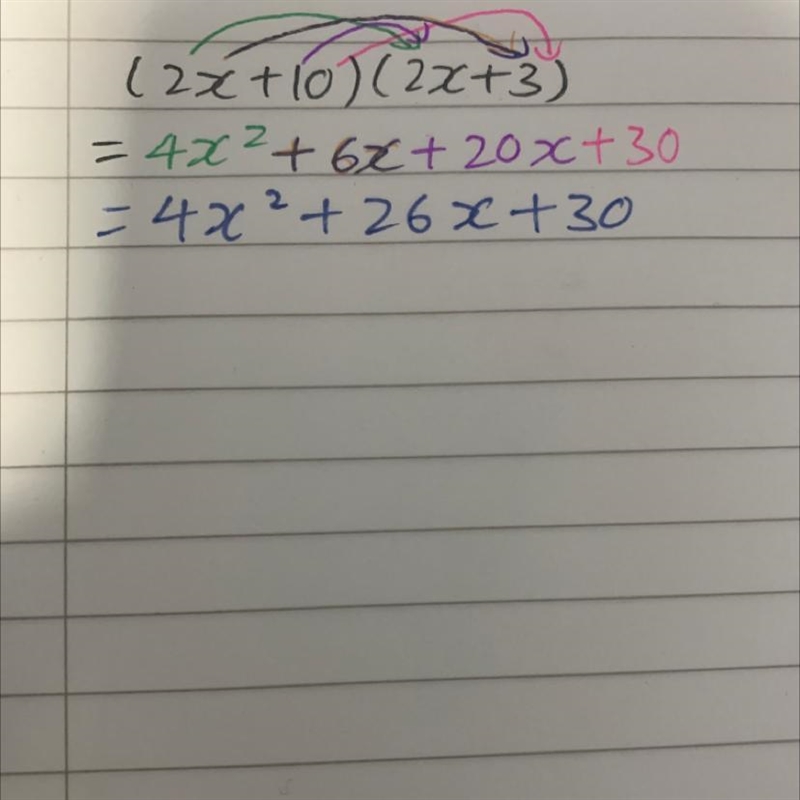 (2x+10)(2x+3)
= 4x² + 6x + 20x + 30
= 4x² + 26x + 30